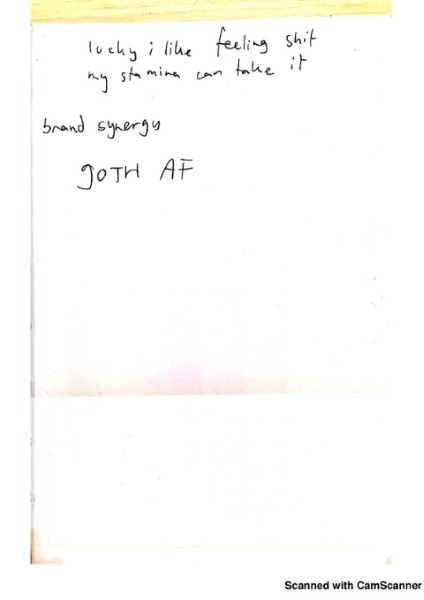 lucky i like feeling shit
my stamina can take it
brand synergy
gOTH AF
Scanned with CamScanner